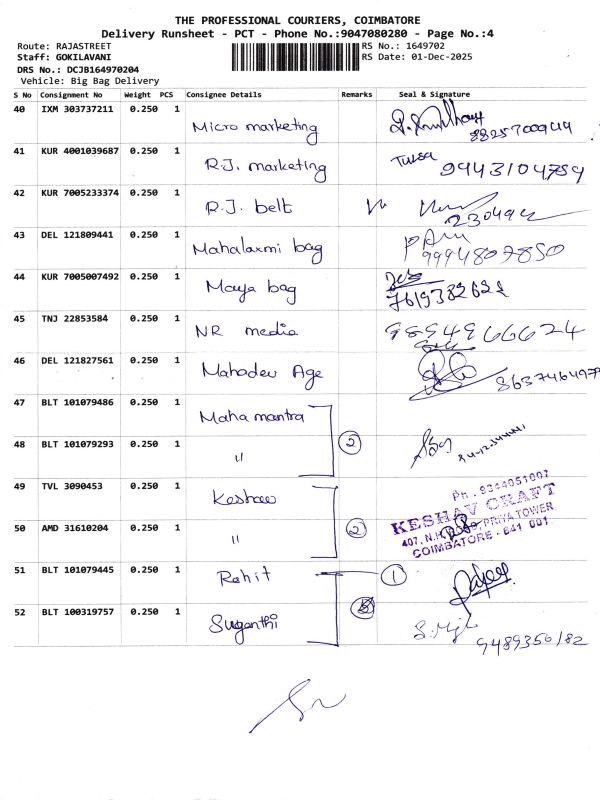 THE PROFESSIONAL COURIERS, COIMBATORE
Delivery Runsheet - PCT - Phone No.:9047080280 - Page No.:4
Route: RAJASTREET RS No.: 1649702
Staff: GOKILAVANI RS Date: 01-Dec-2025
DRS No.: DCJB164970204
Vehicle: Big Bag Delivery
S No Consignment No Weight PCS Consignee Details Remarks Seal & Signature
40 IXM 303737211 0.250 1 Micro marketing
41 KUR 4001039687 0.250 1 R.J. marketing 9943104789
42 KUR 7005233374 0.250 1 R.J. belt
43 DEL 121809441 0.250 1 Mahalaxmi bag 9994807850
44 KUR 7005007492 0.250 1 Maya bag
45 TNJ 22853584 0.250 1 NR media 9894966624
46 DEL 121827561 0.250 1 Mahadev Age
47 BLT 101079486 0.250 1 Maha mantra
48 BLT 101079293 0.250 1 " 2
49 TVL 3090453 0.250 1 Keshav
Ph. 9344951007
KESHAV CRAFT
50 AMD 31610204 0.250 1 " 2
PRIYA TOWER,
COIMBATORE - 641 001
51 BLT 101079445 0.250 1 Rohit 1
52 BLT 100319757 0.250 1 Suganthi 9489350182